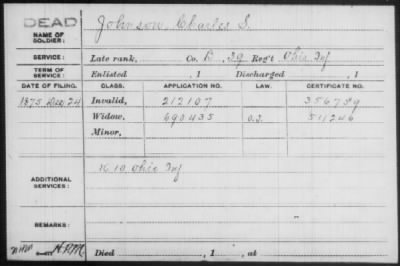 DEAD
NAME OF SOLDIER: Johnson, Charles S.
SERVICE: Late rank, Co. K, 39 Reg't Ohio Inf
TERM OF SERVICE: Enlisted , 1 Discharged , 1
DATE OF FILING. CLASS. APPLICATION NO. LAW. CERTIFICATE NO.
1875 Dec 24 Invalid, 212107 356759
Widow, 690435 O.L. 511246
Minor,
ADDITIONAL SERVICES: K 10 Ohio Inf
REMARKS:
Died , 1 , at